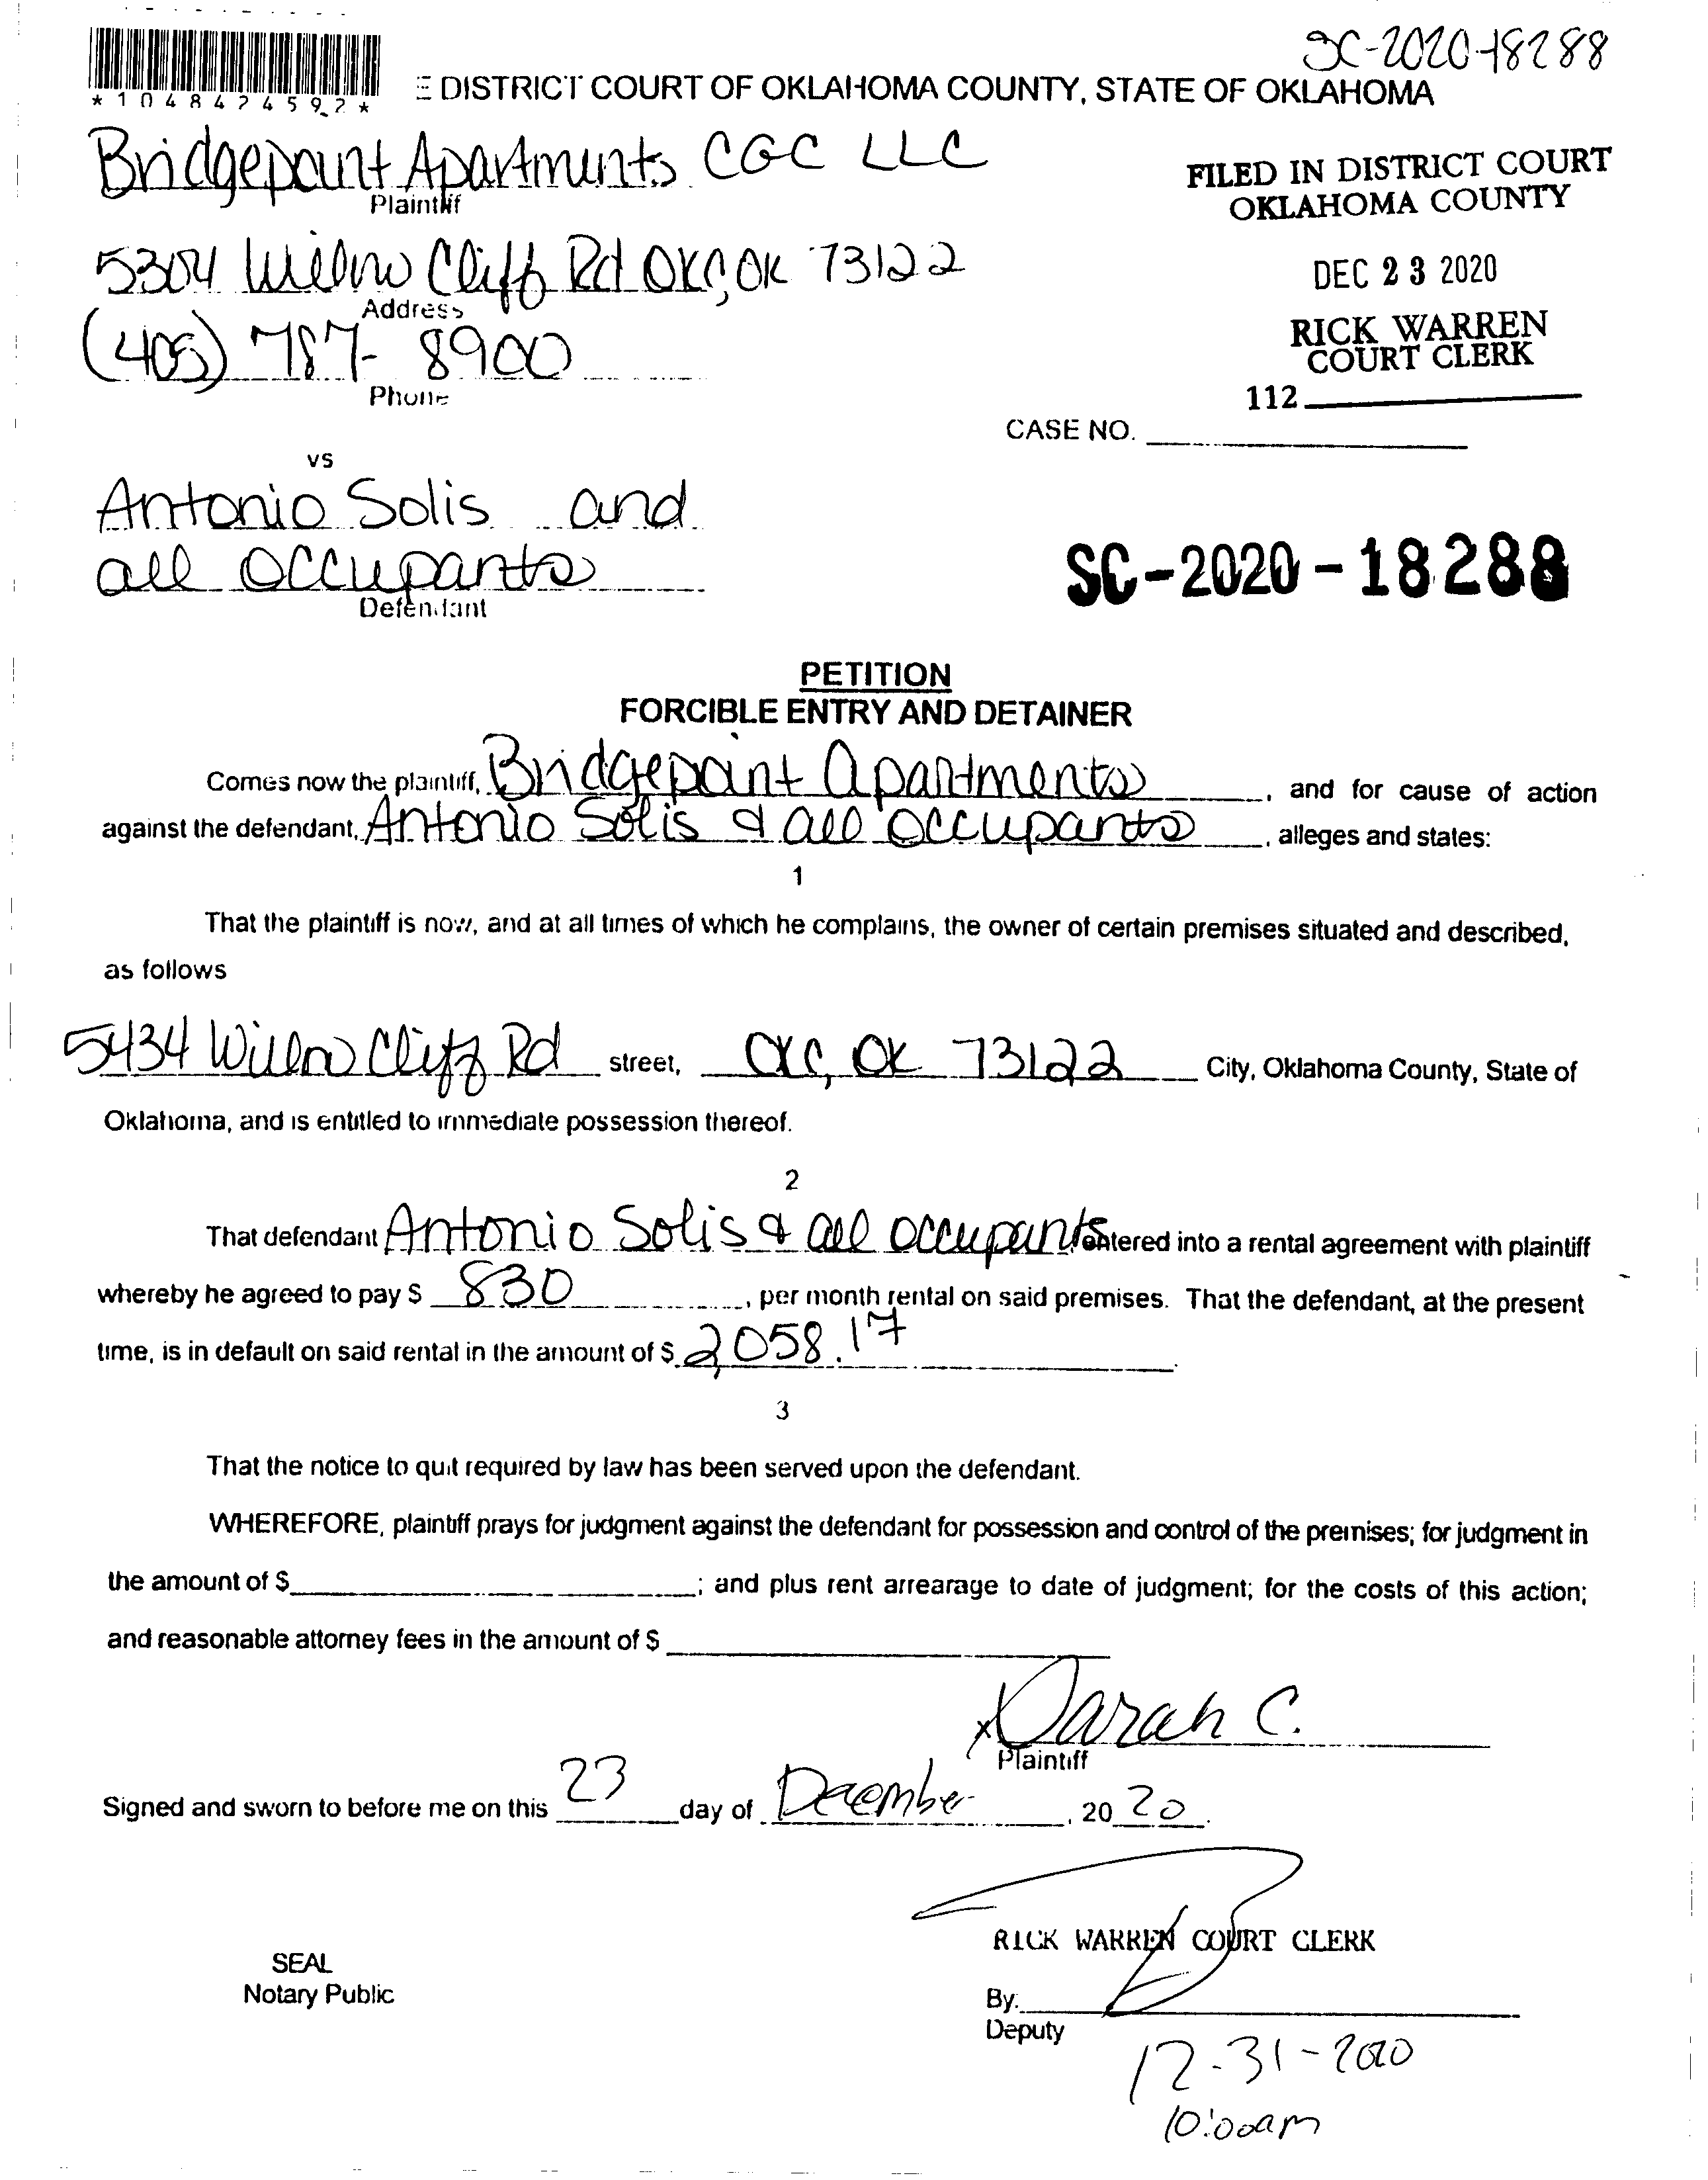 SC-2020-18288
*1048424592*
E DISTRICT COURT OF OKLAHOMA COUNTY, STATE OF OKLAHOMA
Bridgepoint Apartments CGC LLC
Plaintiff
FILED IN DISTRICT COURT
OKLAHOMA COUNTY
5304 Willow Cliff Rd OKC, OK 73122
Address
DEC 23 2020
(405) 787-8900
Phone
RICK WARREN
COURT CLERK
112
CASE NO.
vs
Antonio Solis and
all occupants
Defendant
SC-2020-18288
PETITION
FORCIBLE ENTRY AND DETAINER
Comes now the plaintiff, Bridgepoint Apartments, and for cause of action
against the defendant, Antonio Solis & all occupants, alleges and states:
1
That the plaintiff is now, and at all times of which he complains, the owner of certain premises situated and described,
as follows
5434 Willow Cliff Rd street, OKC, OK 73122 City, Oklahoma County, State of
Oklahoma, and is entitled to immediate possession thereof.
2
That defendant Antonio Solis & all occupants, entered into a rental agreement with plaintiff
whereby he agreed to pay $ 830, per month rental on said premises. That the defendant, at the present
time, is in default on said rental in the amount of $ 2,058.17.
3
That the notice to quit required by law has been served upon the defendant.
WHEREFORE, plaintiff prays for judgment against the defendant for possession and control of the premises; for judgment in
the amount of $ ; and plus rent arrearage to date of judgment; for the costs of this action;
and reasonable attorney fees in the amount of $
x Sarah C.
Plaintiff
Signed and sworn to before me on this 23 day of December, 2020.
RICK WARREN COURT CLERK
SEAL
Notary Public
By:
Deputy
12-31-2020
10:00am